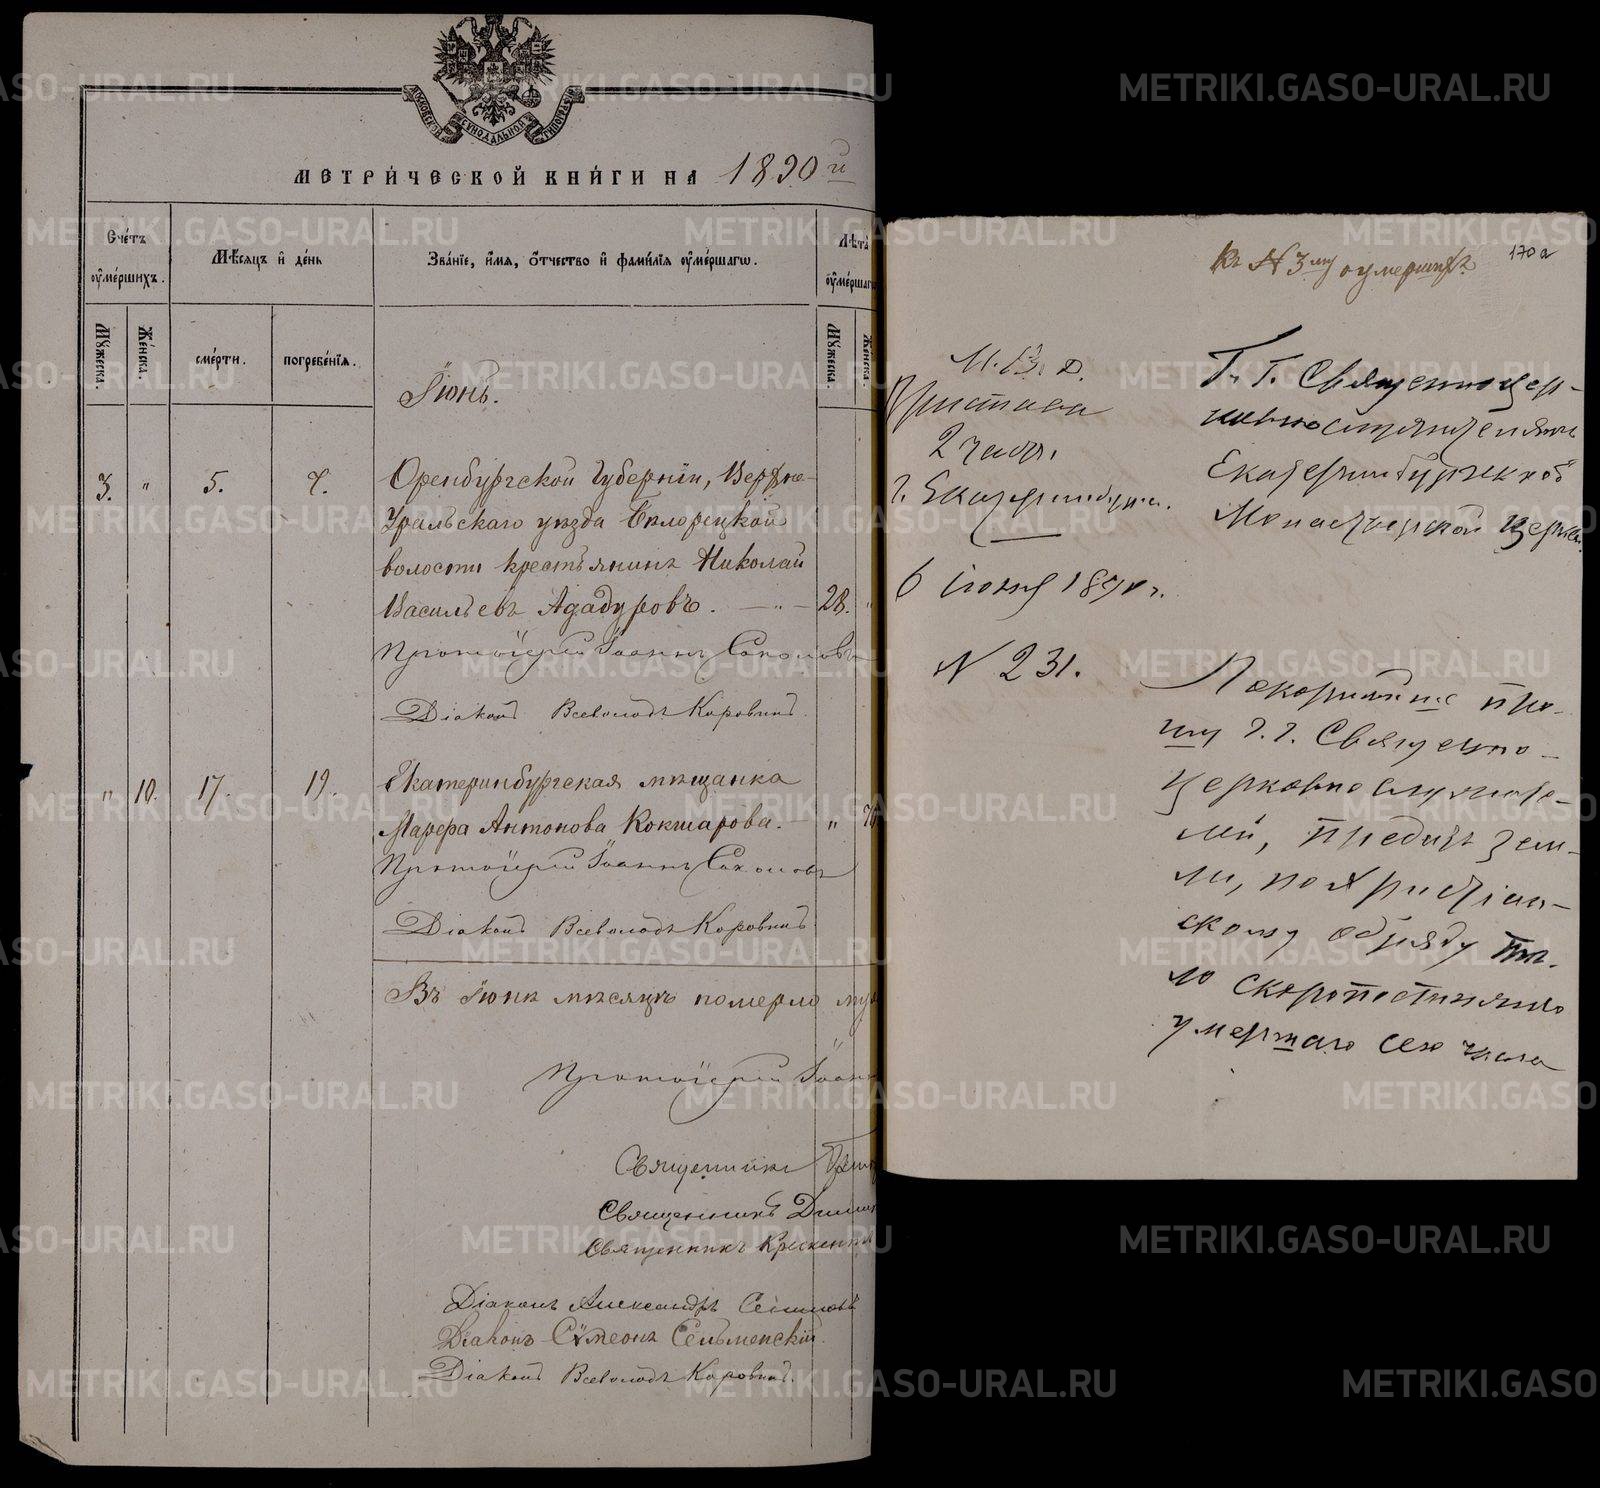 МОСКОВСКОЙ СѴНОДАЛЬНОЙ ТИПОГРАФІИ
МЕТРИ́ЧЕСКОЙ КНИ́ГИ НА 1890 й
Сче́тъ оу҆ме́ршихъ.
Мѣ́сяцъ и҆ де́нь
Зва́нїе, и҆́мя, ѻ҆́тчество и҆ фами́лїя оу҆ме́ршагѡ.
Лѣ́та оу҆ме́ршаг
Мꙋ́жеска.
Же́нска.
сме́рти.
погребе́нїя.
Мꙋ́жеска.
Же́нска
Іюнь.
3. " 5. 7. Оренбургской Губерніи, Верхне-
Уральскаго уѣзда Бѣлорецкой
волости крестьянинъ Николай
Васильевъ Ададуровъ. — " — 28. "
Протоіерей Іоаннъ Соколовъ
Діаконъ Всеволодъ Коровинъ.
" 10. 17. 19. Екатеринбургская мѣщанка
Марфа Антонова Кокшарова. — "
Протоіерей Іоаннъ Соколовъ
Діаконъ Всеволодъ Коровинъ
Въ Іюнѣ мѣсяцѣ померло му
Протоіерей Іоанн
Священникъ
Священникъ Дими
Священникъ
Діаконъ Александръ
Діаконъ Сѵмеонъ Сельменскій.
Діаконъ Всеволодъ Коровинъ.
къ № 3му умершихъ
170а
М. В. Д.
Пристава
2 части.
г. Екатеринбурга.
6 Іюня 1890 г.
№ 231.
Г. Г. Священноцер-
ковнослужителямъ
Екатеринбургской
Монастырской Церкви.
Покорнѣйше про-
шу г.г. Священно-
церковнослужите-
лей, предать зем-
ли, по христіан-
скому обряду тѣ-
ло скоропостижно
умершаго сего числа
METRIKI.GASO-URAL.RU